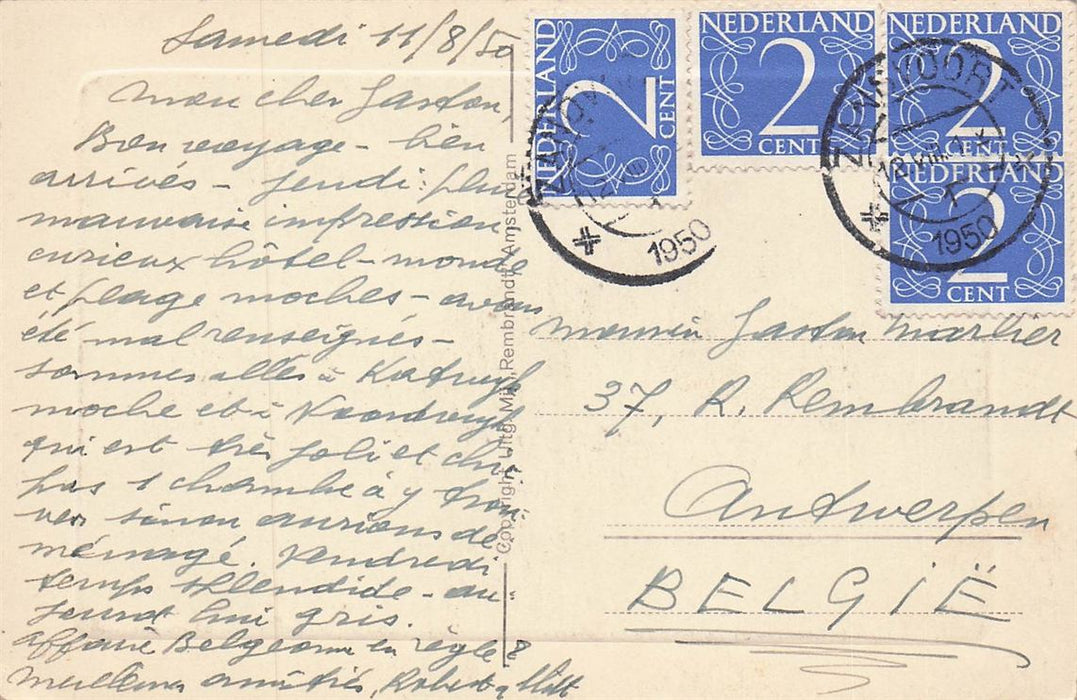 Samedi 11/8/50
Mon cher Gaston,
Bon voyage - bien
arrivés - jeudi: plus
mauvaise impression
curieux hôtel - monde
et plage moches - avons
été mal renseignés -
sommes allés à Katwyk
moche et à Noordwyk
qui est très joli et chic
pas 1 chambre à y trou-
ver sinon aurions dé-
ménagé. Vendredi
temps splendide - au-
jourd'hui gris.
affaire Belgeonne en règle?
Meilleures amitiés, Robert
Copyright Uitg. Mij. Rembrandt, Amsterdam
NEDERLAND
2
CENT
NEDERLAND
2
CENT
NEDERLAND
2
CENT
2
CENT
ZANDVOORT
12 VIII
1950
ZANDVOORT
12 VIII
1950
Monsieur Gaston Marlier
37, R. Rembrandt
Antwerpen
BELGIË